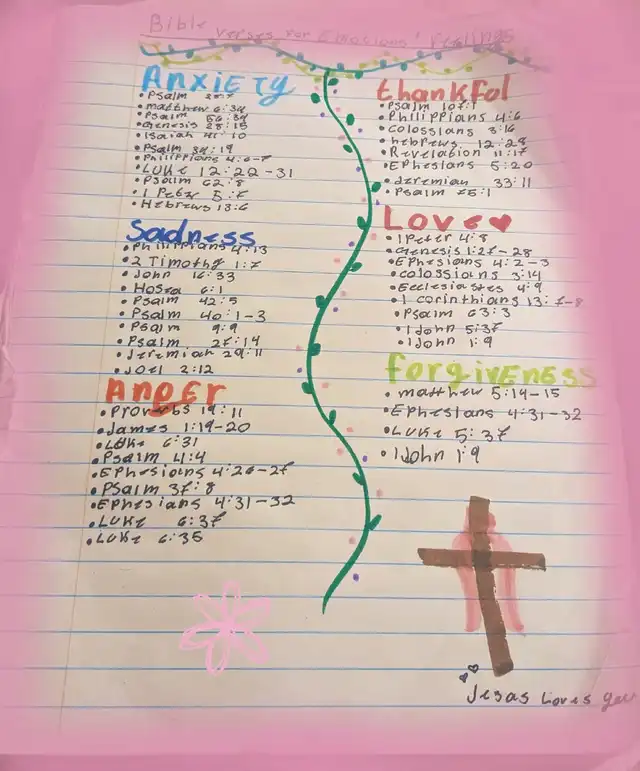 Bible verses for Emotions' Feelings
Anxiety
•Psalm
•matthew 6:34
•Psalm
•Genesis 28:15
•Isaiah 41:10
•Psalm 94:19
•Philippians 4:6-7
•LUKe 12:22-31
•Psalm 62:8
•1 Peter 5:7
•Hebrews 13:6
Sadness
•Philippians 4:13
•2 Timothy 1:7
•John 16:33
•Hosea 6:1
•Psalm 42:5
•Psalm 40:1-3
•Psalm 9:9
•Psalm 27:14
•Jeremiah 29:11
•Joel 2:12
Anger
•Proverbs 19:11
•James 1:19-20
•LUKe 6:31
•Psalm 4:4
•Ephesians 4:26-27
•Psalm 37:8
•Ephesians 4:31-32
•LUKe 6:37
•LUKe 6:35
thankful
•Psalm 107:1
•Philippians 4:6
•Colossians 3:16
•hebrews 12:28
•Revelation 11:17
•Ephesians 5:20
•Jeremiah 33:11
•Psalm 75:1
Love
•1Peter 4:8
•Genesis 1:27-28
•Ephesians 4:2-3
•colossians 3:14
•Ecclesiastes 4:9
•1 corinthians 13:7-8
•Psalm 63:3
•1John
•1John 1:9
forgiveness
•matthew 5:14-15
•Ephesians 4:31-32
•LUKe 5:37
•1John 1:9
Jesas Loves you